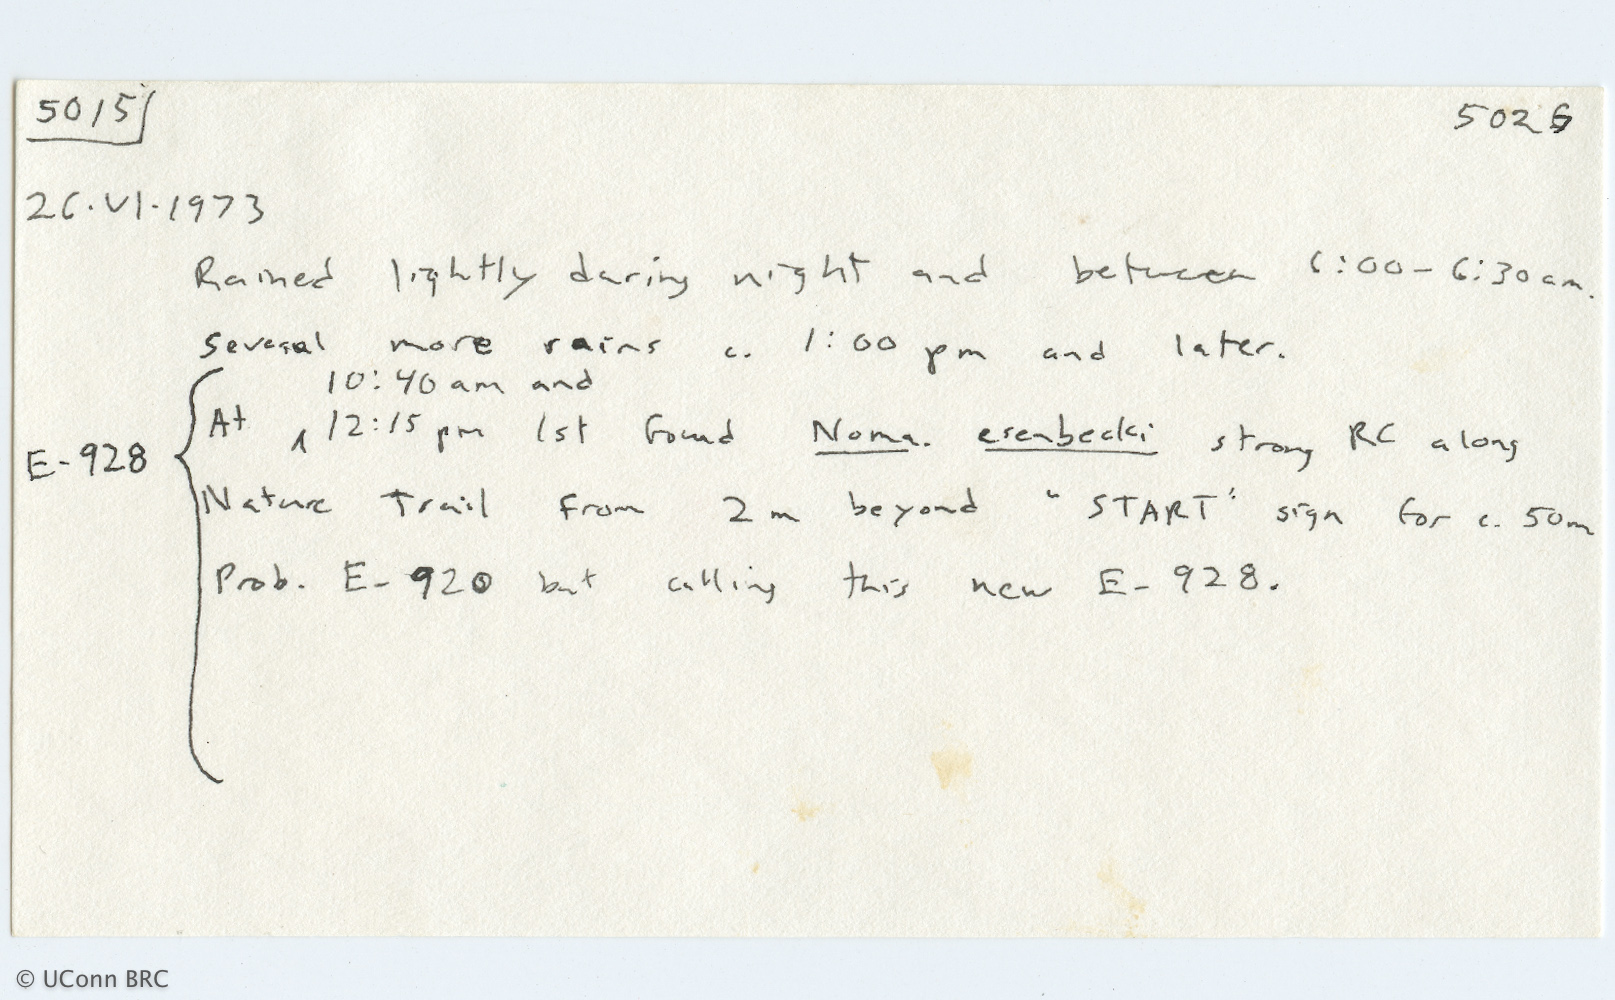 5015 5026
26.VI.1973
Rained lightly during night and between 6:00-6:30am.
several more rains c. 1:00 pm and later.
10:40 am and
At ^ 12:15 pm 1st found Noma. esenbecki strong RC along
E-928
Nature Trail from 2m beyond "START" sign for c. 50m
Prob. E-920 but calling this new E-928.
© UConn BRC